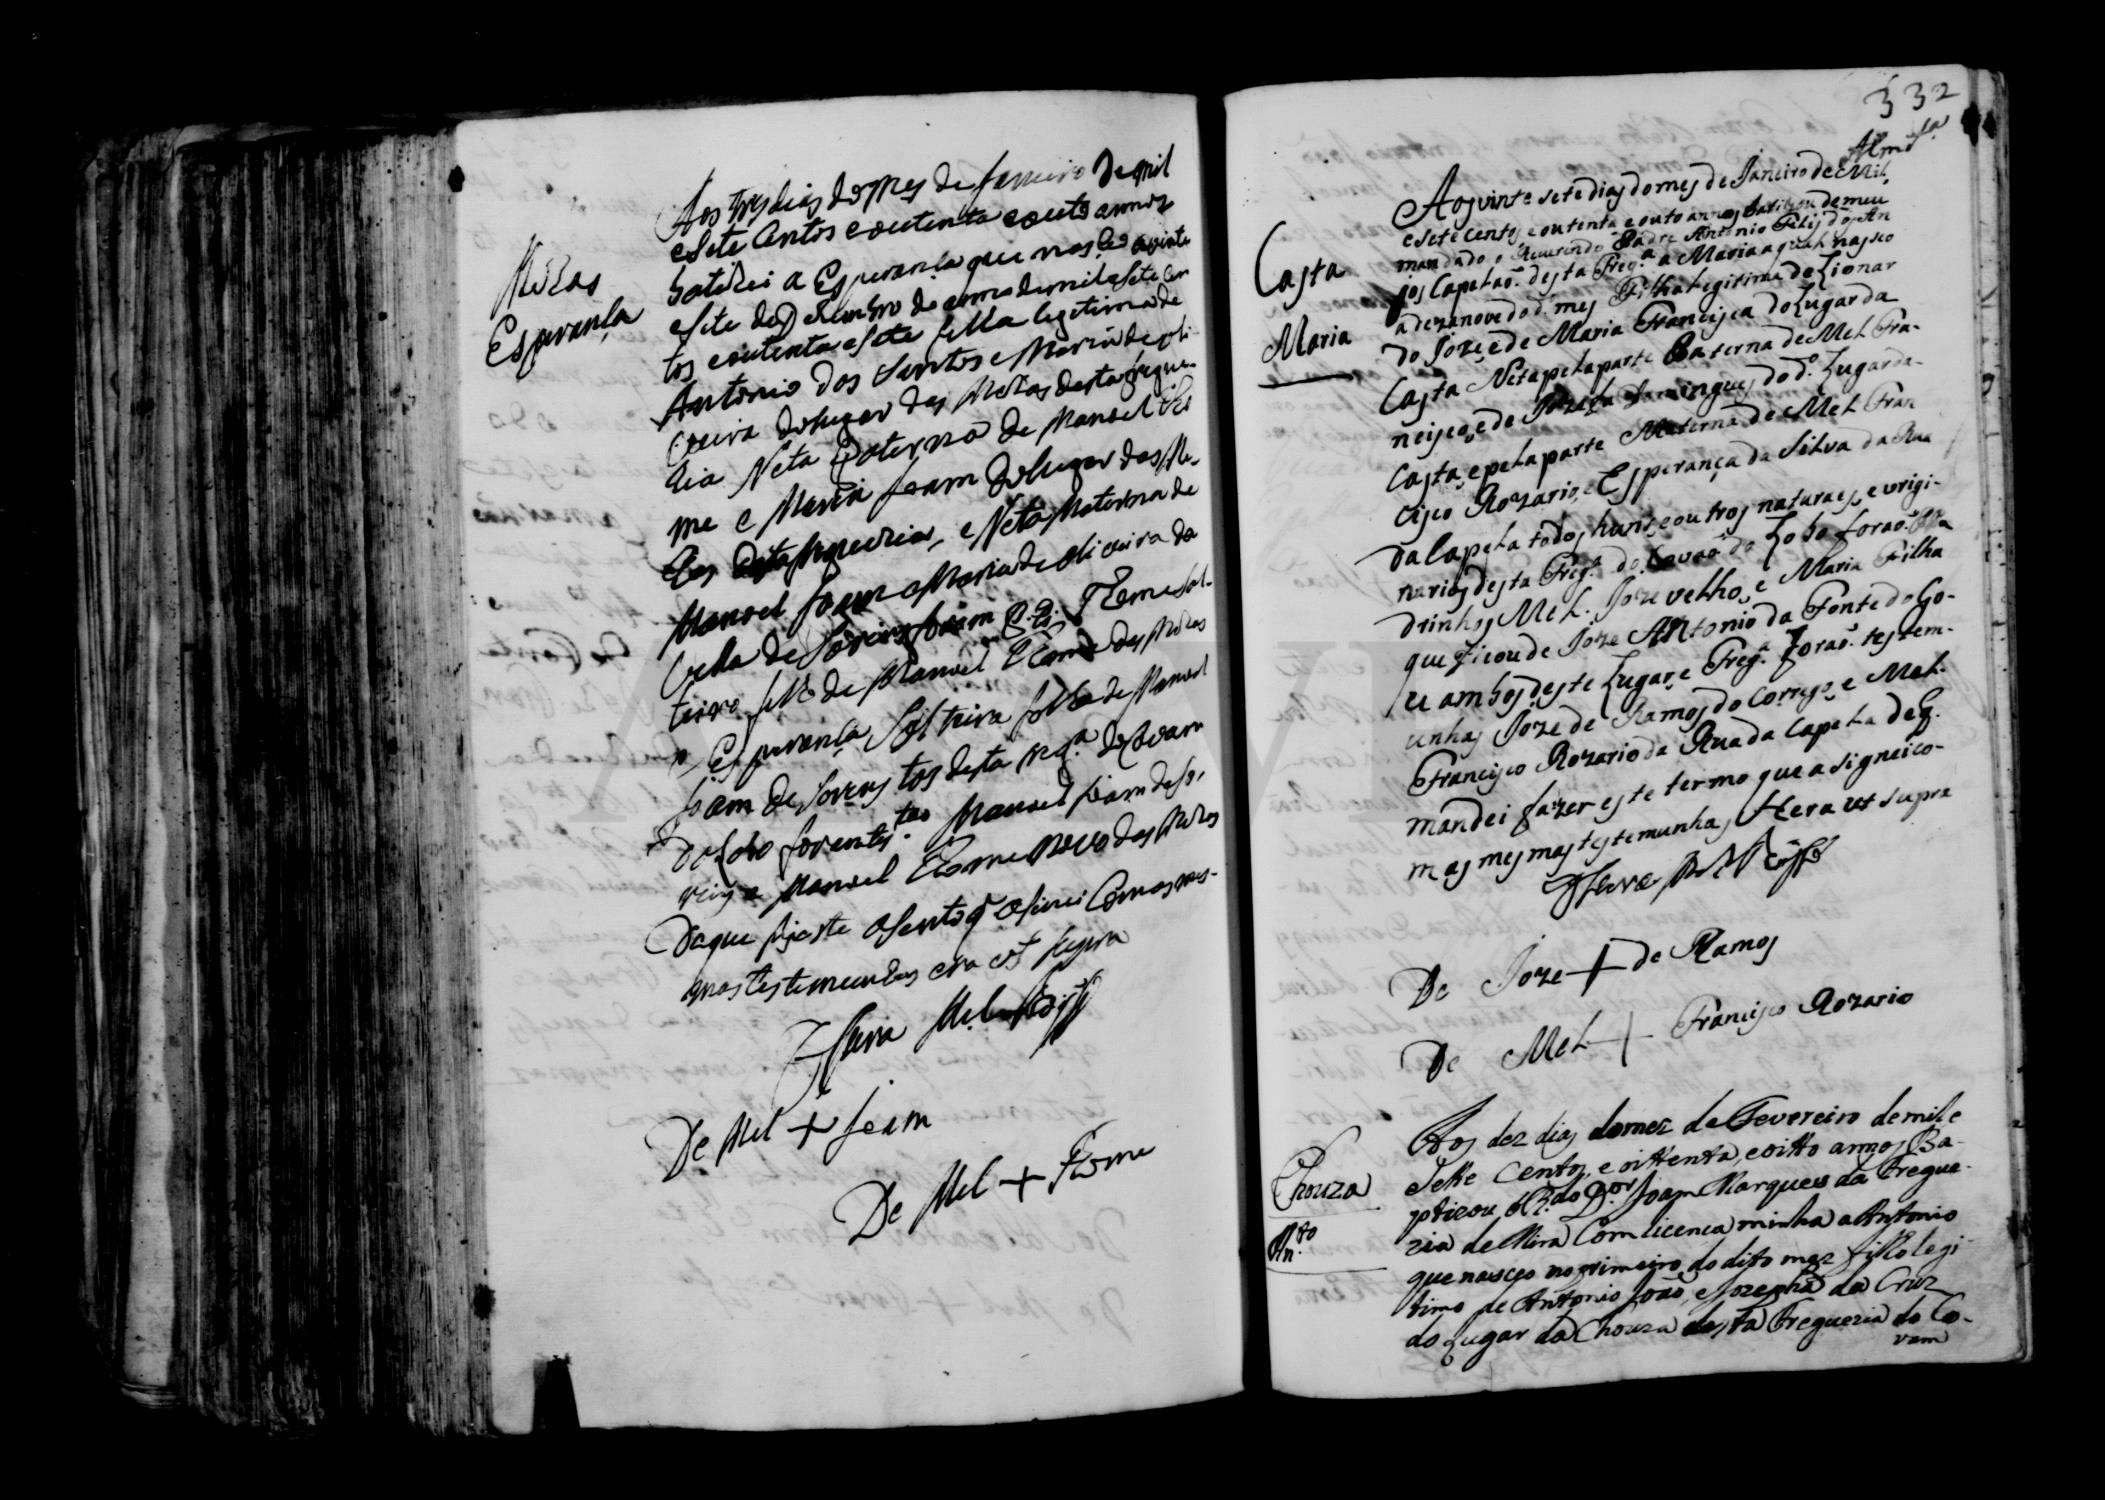 Mezas
Esperanſa
Aos tres dias do mes de Janeiro de mil
e Sete Centos e outenta e outo annos
batizei a Esperanſa que nasceo a vinte
e Sete de Dezembro do anno de mil e Sete Cen
tos e outenta e Sete filha legitima de
Antonio dos Santos e Maria de oli
veira do lugar das Mezas desta fregue-
zia Neta Paterna de Manoel
me e Maria Joam do lugar das Me-
zas desta freguezia, e Neta Materna de
Manoel Joam e Maria de oliveira do
de foram P. P. Thome Sol-
teiro filho de Manoel Thome das Mezas
e Esperanſa Solteira filha de Manoel
Joam de desta freg.a do Covam
do Lobo foram tes.tas Manoel Joam de
e Manoel Thome novo das Mezas
Daque fiz este aSento q aSinei Com as mes-
mas testemunhas era ut Supra
De Mel + Joam
De Mel + Thome
332
Casta
Maria
Aos vinte sete dias do mes de Janeiro de Mil,
e sete centos e outenta e outo annos batizou de meu
mandado o Reverendo Padre Antonio Felis dos An
jos Capelaõ desta Freg.a a Maria a qual nasseo
a dezanove do d. mes Filha Legitima de Lionar
do Joze e de Maria Francisca do Lugar da
Casta Neta pela parte Paterna de Mel Fra-
ncisco, e de Jozefa Domingues do d.o Lugar da
Casta, e pela parte Materna de Mel Fran
cisco Rozario, e Esperança da Silva da Rua
da Capela todos huns, e outros naturaes, e origi-
narios desta Freg.a do Covaõ do Lobo foraõ Pa
drinhos Mel. Joze velho, e Maria Filha
que ficou de Joze Antonio da Fonte do Go-
ambos deste Lugar, e Freg.a foraõ testem-
unhas Joze de Ramos do Corrego, e Mel.
Francisco Rozario da Rua da Capela de q.
mandei fazer este termo que asignei co-
m as mesmas testemunhas Hera ut supra
De Joze + de Ramos
De Mel + Francisco Rozario
Chouza
An.to
Aos dez dias do mez de Fevereiro de mil e
Sette Centos e oittenta, e oitto annos Ba-
ptizou o R.do D.or Joam Marques da Fregue-
zia de Mira Com licenca minha a Antonio
que nasceo no primeiro do dito mez filho legi
timo de Antonio Joaõ, e Jozepha da Cruz
do Lugar da Chouza desta Freguezia do Co-
vam